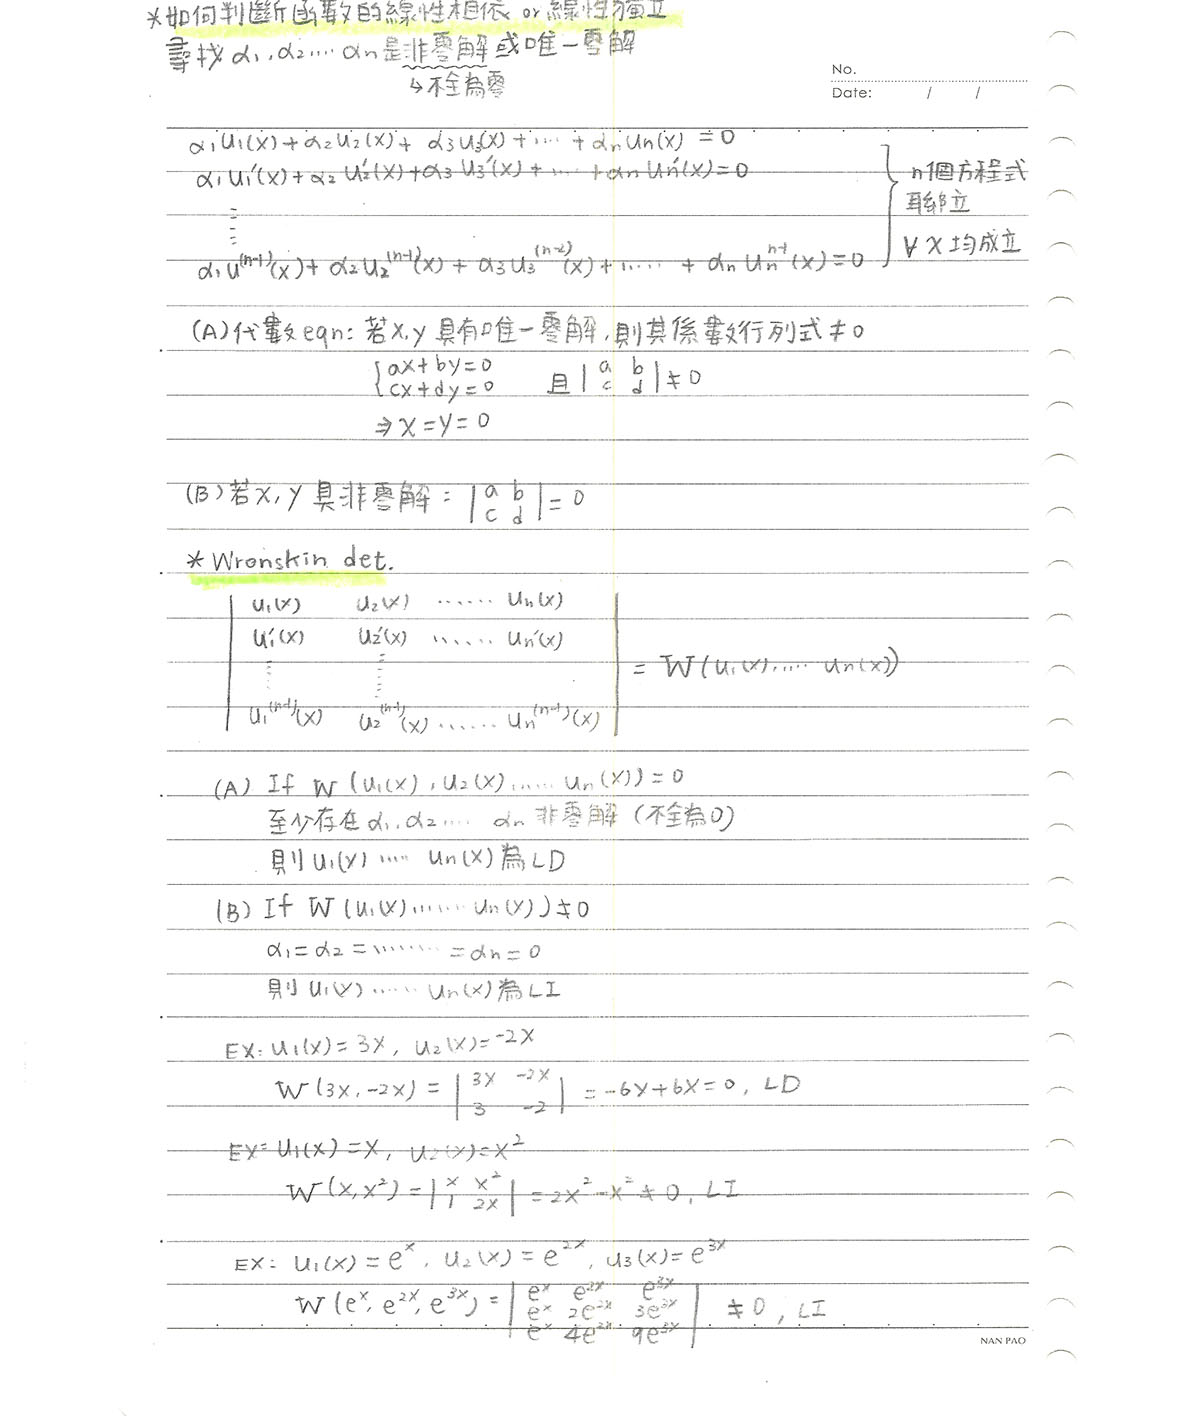 *如何判斷函數的線性相依 or 線性獨立
尋找 α1, α2‥‥ αn 是非零解或唯一零解
↳不全為零
No.
Date: / /
α1u1(x)+α2u2(x)+ α3u3(x)+‥‥+αnun(x)=0
α1u1'(x)+α2u2'(x)+α3u3'(x)+‥‥+αnun'(x)=0
⋮
α1u^(n-1)(x)+α2u2^(n-1)(x)+α3u3^(n-2)(x)+‥‥‥+αnun^n-1(x)=0
n個方程式
聯立
∀x均成立
(A)代數eqn: 若x,y具有唯一零解,則其係數行列式≠0
{ax+by=0
cx+dy=0 且 |a b
c d| ≠0
⇒x=y=0
(B)若x,y具非零解: |a b
c d|=0
*Wronskin det.
| u1(x) u2(x) ‥‥‥ un(x) |
| u1'(x) u2'(x) ‥‥‥ un'(x) |
| ⋮ ⋮ | = W(u1(x)‥‥‥ un(x))
| u1^(n-1)(x) u2^(n-1)(x)‥‥‥ un^(n-1)(x) |
(A) If W(u1(x),u2(x)‥‥‥ un(x))=0
至少存在α1,α2‥‥ αn非零解(不全為0)
則u1(x)‥‥ un(x)為LD
(B) If W(u1(x)‥‥‥ un(x))≠0
α1=α2=‥‥‥‥=αn=0
則u1(x)‥‥‥un(x)為LI
EX: u1(x)=3x, u2(x)=-2x
W(3x,-2x)=|3x -2x
3 -2|=-6x+6x=0, LD
EX: u1(x)=x, u2(x)=x²
W(x,x²)=|x x²
1 2x|=2x²-x²≠0, LI
EX: u1(x)=e^x, u2(x)=e^2x, u3(x)=e^3x
W(e^x,e^2x,e^3x)=|e^x e^2x e^3x
e^x 2e^2x 3e^3x
e^x 4e^2x 9e^3x| ≠0, LI
NAN PAO